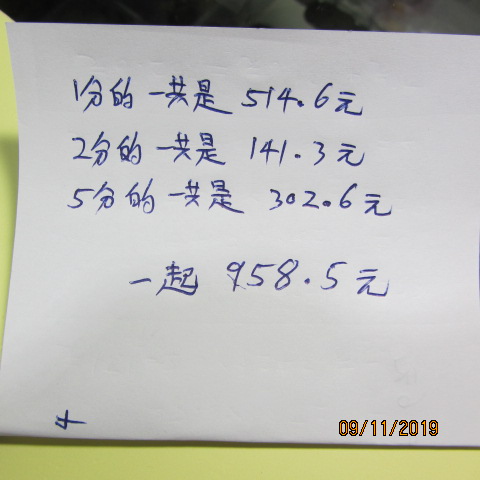 1分的一共是 514.6元
2分的一共是 141.3元
5分的一共是 302.6元
一起 958.5元
09/11/2019